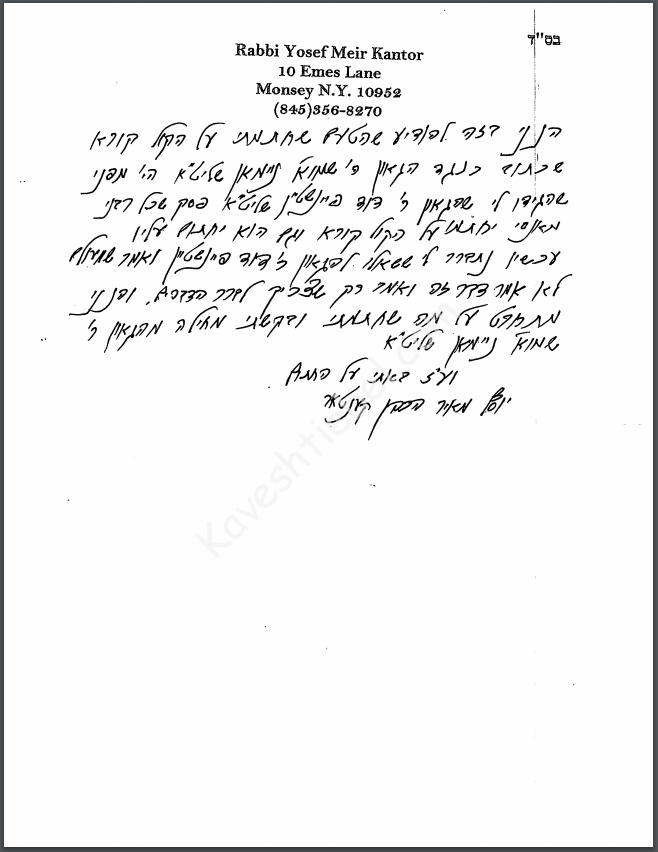 בס"ד
Rabbi Yosef Meir Kantor
10 Emes Lane
Monsey N.Y. 10952
(845)356-8270
הנני בזה להודיע שהטעם שחתמתי על הקול קורא
שכתוב כנגד הגאון ר' שמואל ניימאן שליט"א הי' מפני
שהגידו לי שהגאון ר' דוד פיינשטיין שליט"א פסק שכל רבני
מאנסי יחתמו על הקול קורא וגם הוא יחתום עליו
עכשיו נתברר לי ששאלו להגאון ר' דוד פיינשטיין ואמר שמעולם
לא אמר דבר זה ואמר רק שצריך לברר הדברים, והנני
מתחרט על מה שחתמתי ובקשתי מחילה מהגאון ר'
שמואל ניימאן שליט"א
וע"ז באתי על החתם
יוסף מאיר הכהן קאנטאר
Kaveshtiezer.com